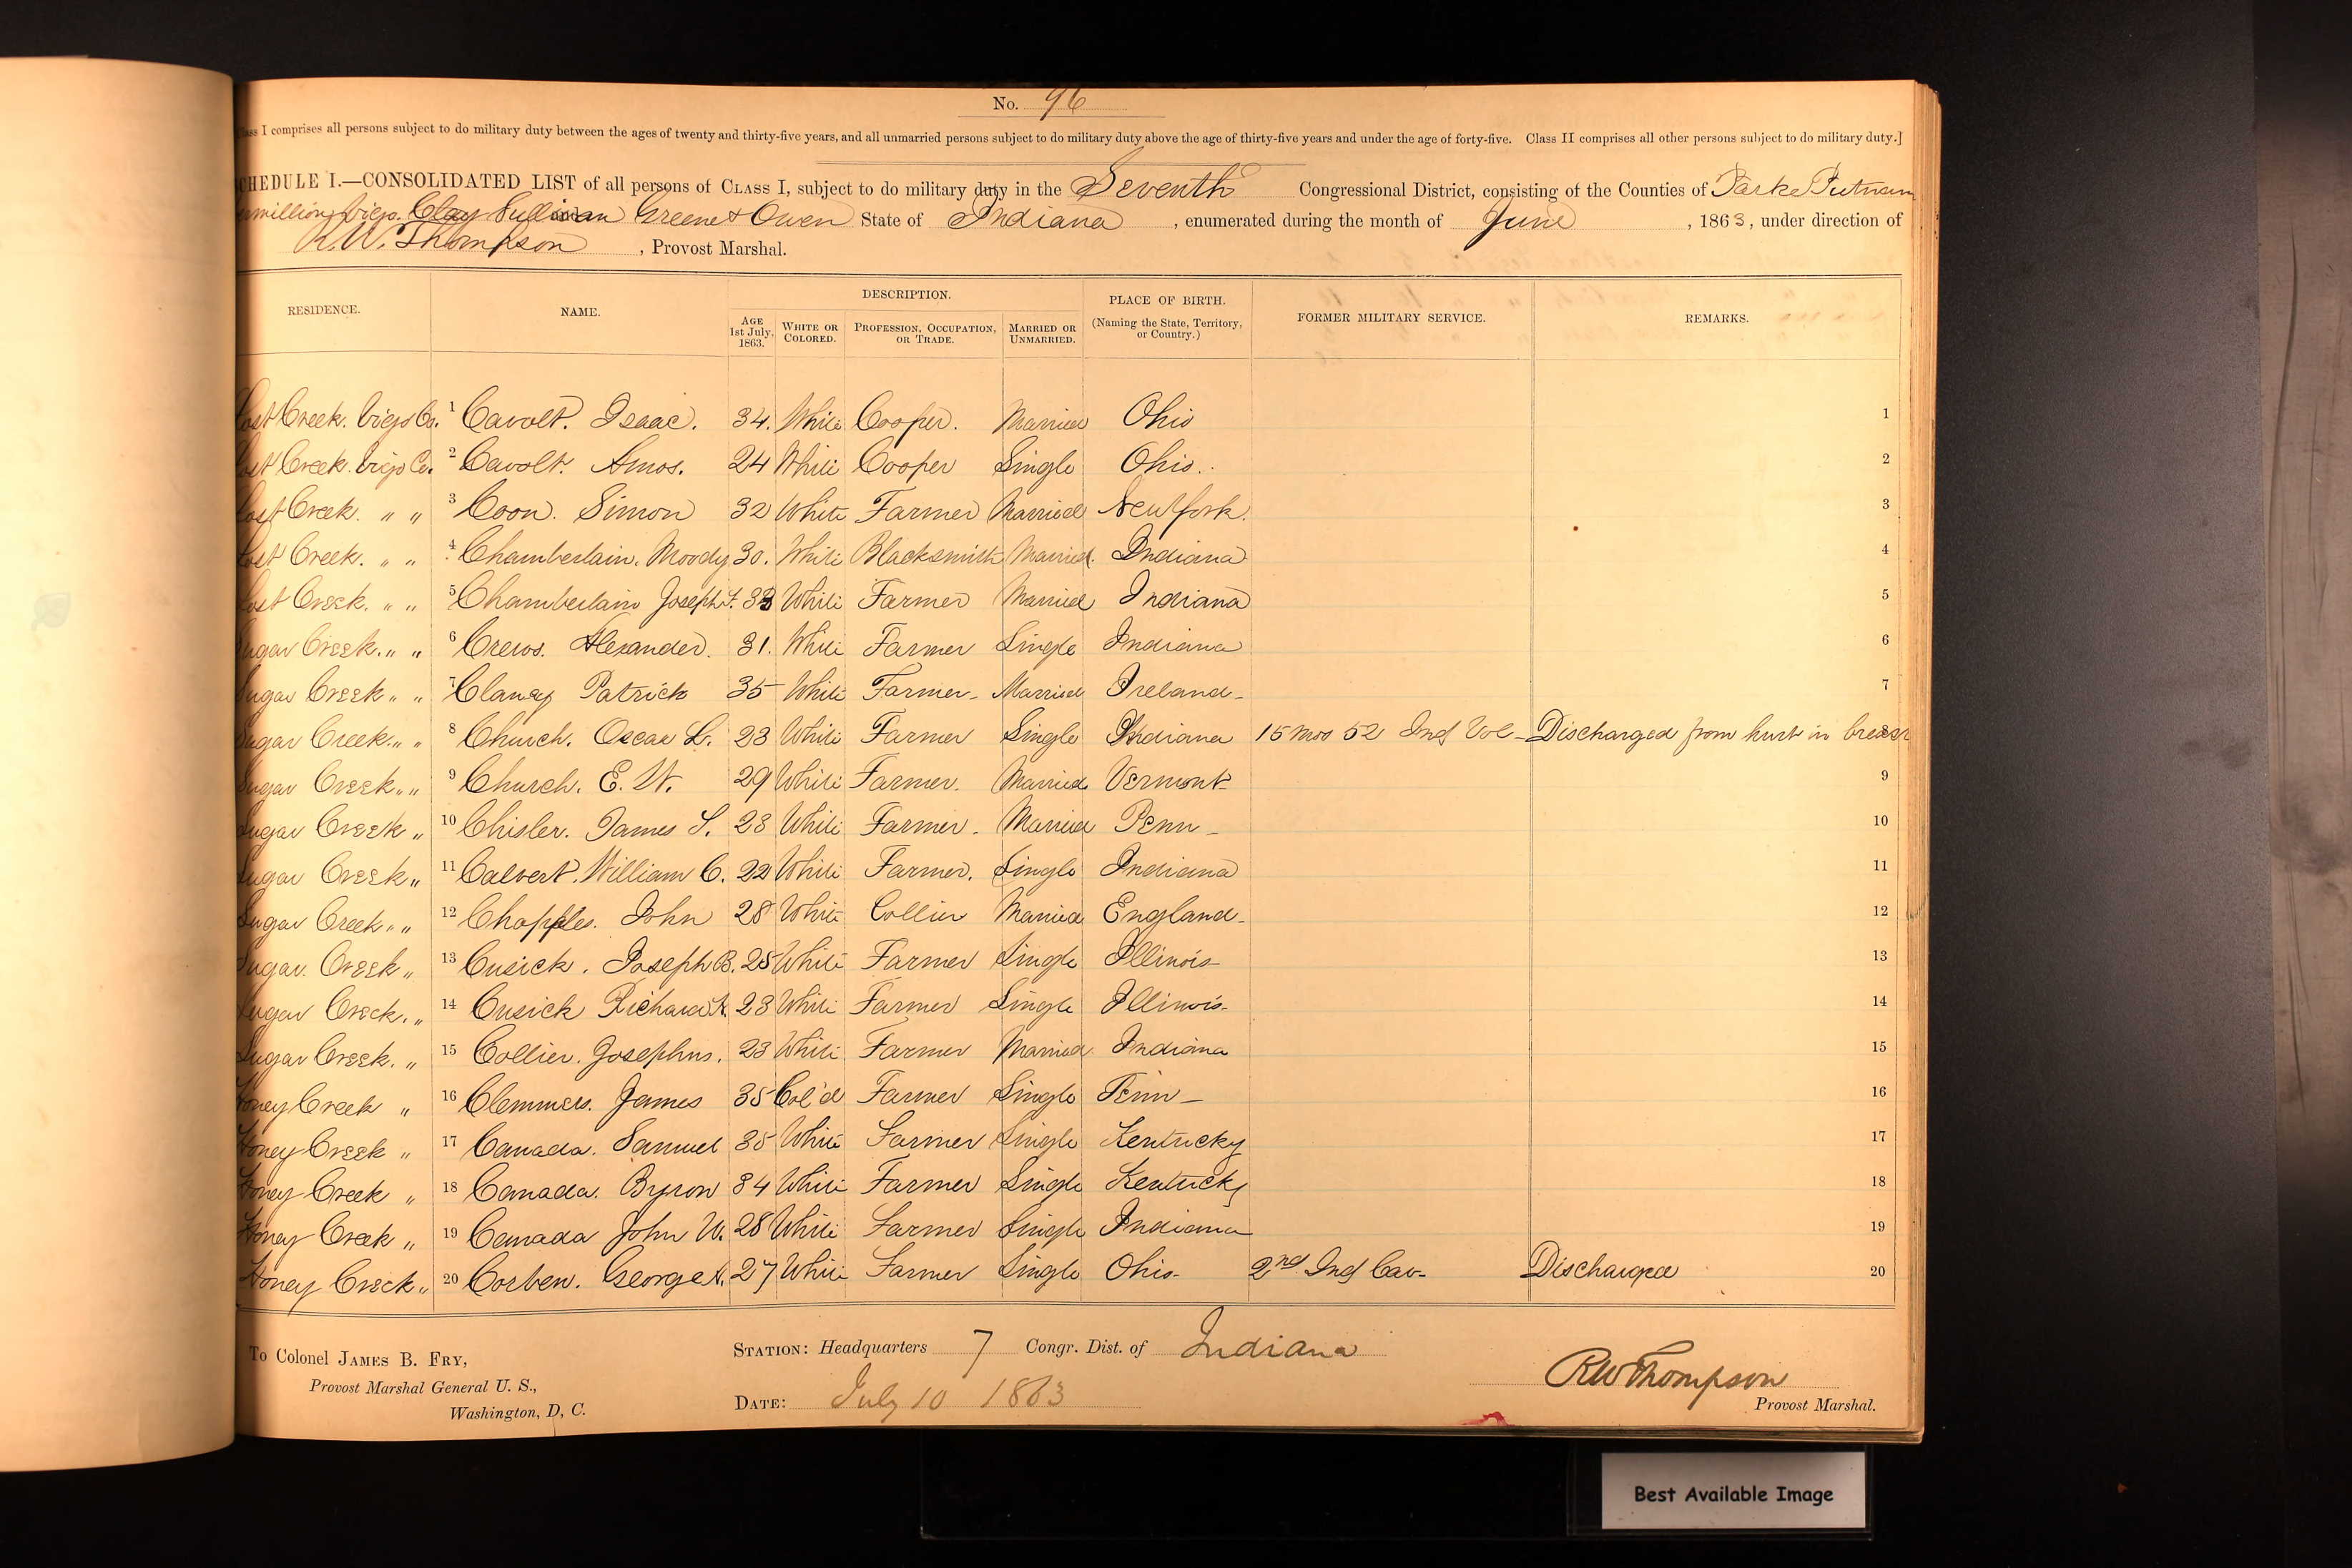 No. 96
lass I comprises all persons subject to do military duty between the ages of twenty and thirty-five years, and all unmarried persons subject to do military duty above the age of thirty-five years and under the age of forty-five. Class II comprises all other persons subject to do military duty.]
CHEDULE I.—CONSOLIDATED LIST of all persons of CLASS I, subject to do military duty in the Seventh Congressional District, consisting of the Counties of Parke Putnam
rmillion, Vigo. Clay Sullivan Greene & Owen State of Indiana, enumerated during the month of June, 1863, under direction of
R. W. Thompson, Provost Marshal.
RESIDENCE. NAME. DESCRIPTION. PLACE OF BIRTH. (Naming the State, Territory, or Country.) FORMER MILITARY SERVICE. REMARKS.
AGE 1st July, 1863. WHITE OR COLORED. PROFESSION, OCCUPATION, OR TRADE. MARRIED OR UNMARRIED.
Lost Creek. Vigo Co. 1 Cavolt. Isaac. 34. White Cooper. Married Ohio 1
Lost Creek. Vigo Co. 2 Cavolt. Amos. 24 White Cooper Single Ohio. 2
Lost Creek. " " 3 Coon. Simon 32 White Farmer Married New York. 3
Lost Creek. " " 4 Chamberlain. Moody 30. White Blacksmith Married. Indiana 4
Lost Creek. " " 5 Chamberlain Joseph 33 White Farmer Married Indiana 5
Sugar Creek. " " 6 Crews. Alexander. 31. White Farmer Single Indiana 6
Sugar Creek " " 7 Clancy Patrick 35 White Farmer Married Ireland 7
Sugar Creek. " " 8 Church. Oscar L. 23 White Farmer Single Indiana 15 mos 52 Ind Vol Discharged from hurt in breast 8
Sugar Creek. " " 9 Church. E. W. 29 White Farmer. Married Vermont 9
Sugar Creek " 10 Chisler. James S. 23 White Farmer. Married Penn 10
Sugar Creek " 11 Calvert. William C. 22 White Farmer. Single Indiana 11
Sugar Creek " " 12 Chapples. John 28 White Collier Married England 12
Sugar. Creek " 13 Cusick. Joseph B. 25 White Farmer Single Illinois 13
Sugar Creek. " 14 Cusick Richard 23 White Farmer Single Illinois 14
Sugar Creek. " 15 Collier. Josephus. 23 White Farmer Married Indiana 15
Honey Creek " 16 Clemmers. James 35 Col'd Farmer Single 16
Honey Creek " 17 Canada. Samuel 35 White Farmer Single Kentucky 17
Honey Creek " 18 Canada. Byron 34 White Farmer Single Kentucky 18
Honey Creek " 19 Canada John W. 28 White Farmer Single Indiana 19
Honey Creek " 20 Corben. George 27 White Farmer Single Ohio 2nd Ind Cav Discharged 20
To Colonel JAMES B. FRY,
Provost Marshal General U. S.,
Washington, D, C.
STATION: Headquarters 7 Congr. Dist. of Indiana
DATE: July 10 1863
RW Thompson
Provost Marshal.
Best Available Image